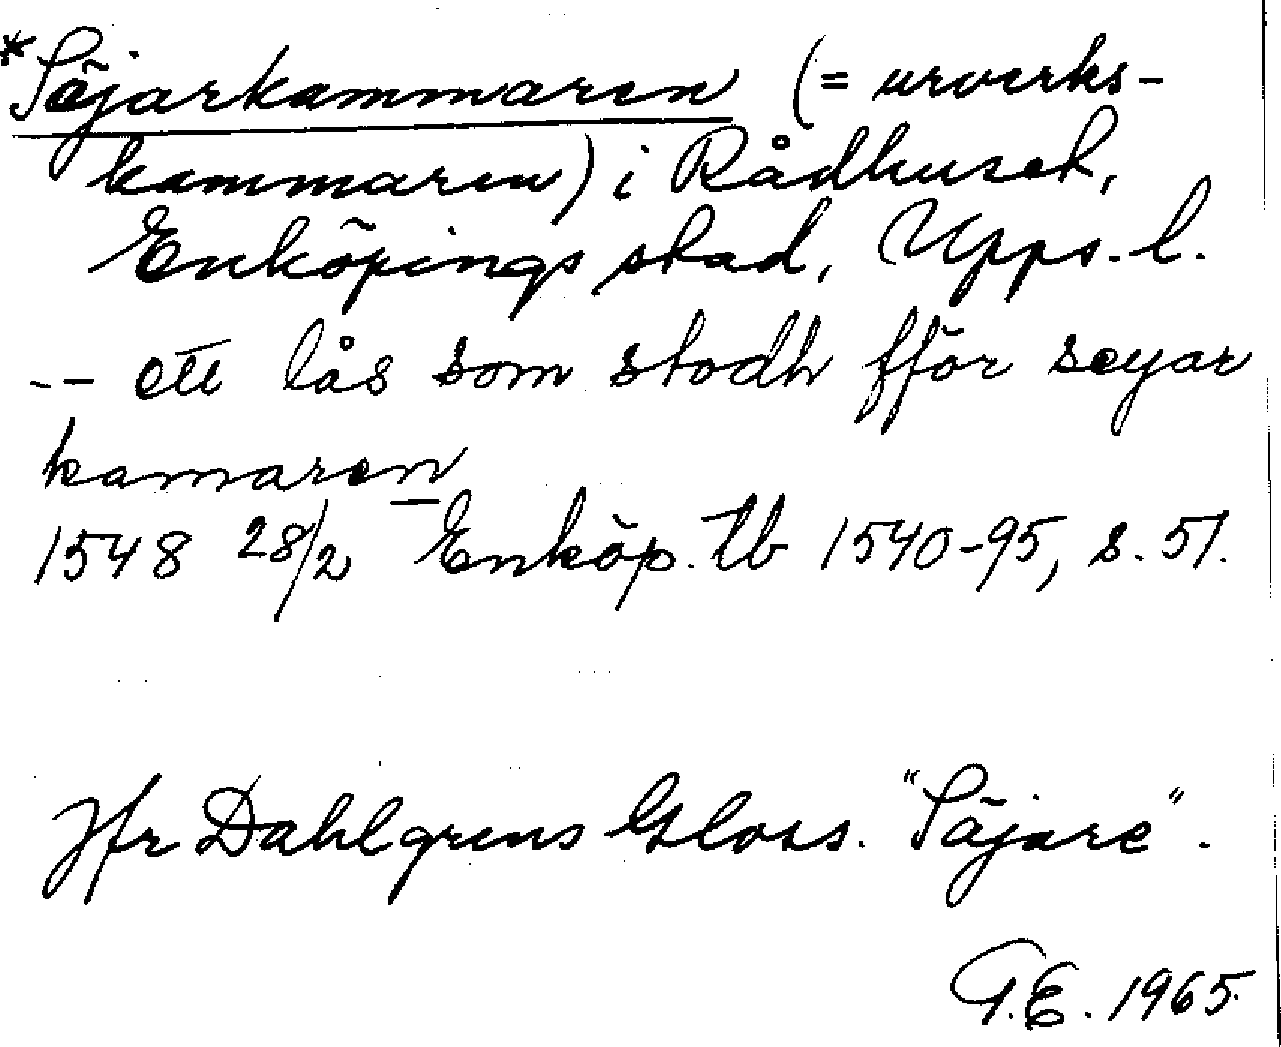 *Söjarkammaren (= urverks-
kammaren) i Rådhuset,
Enköpings stad, Upps. l.
-- ett lås som stodh fför seyar
kamaren
1548 28/2 Enköp. tb 1540-95, s. 51.
Jfr Dahlgrens Gloss. "Säjare".
G.E. 1965.